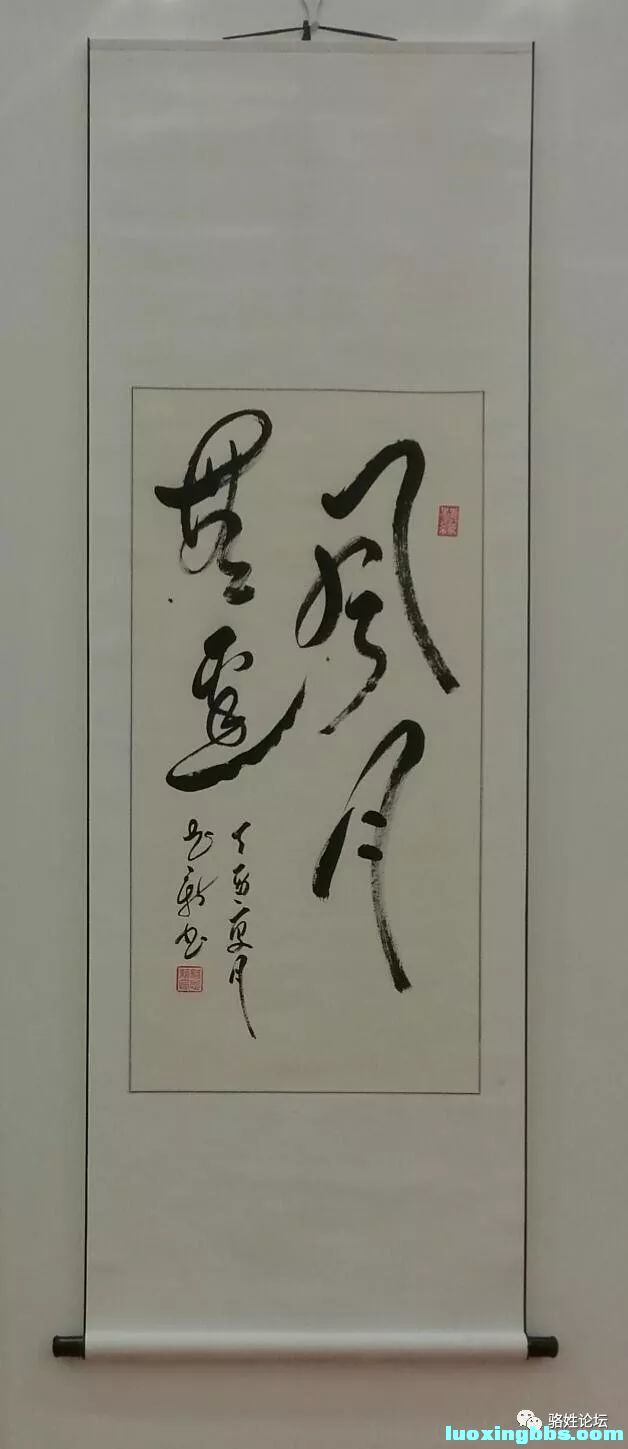 風月
無邊
丁酉夏月
新书
骆姓论坛
luoxingbbs.com